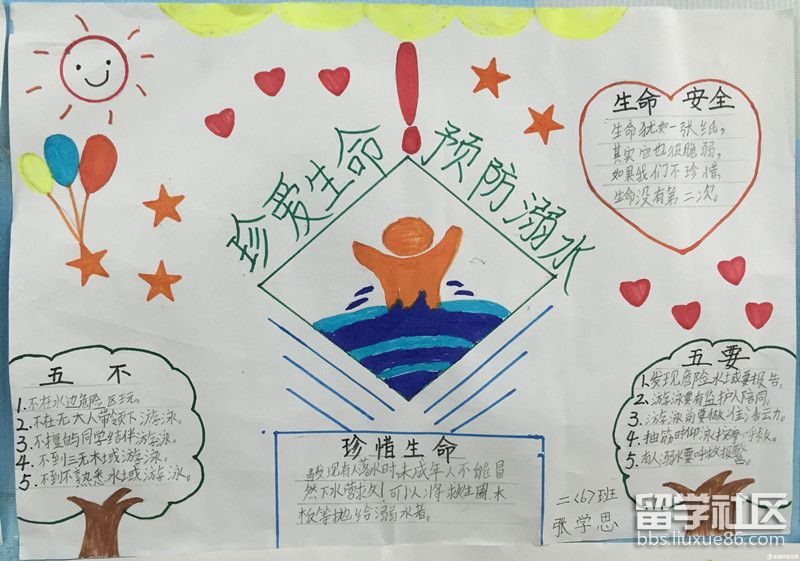 珍爱生命
预防溺水
生命 安全
生命犹如一张纸,
其实它也很脆弱,
如果我们不珍惜,
生命没有第二次。
五 不
1.不在水边危险区玩。
2.不在无大人带领下游泳。
3.不擅自与同学结伴游泳。
4.不到三无水域游泳。
5.不到不熟悉水域游泳。
五 要
1.发现危险水域要报告。
2.游泳要有监护人陪同。
3.游泳前要做
4.抽筋时仰泳
5.有人溺水要呼救报警。
珍惜生命
发现有人溺水时,未成年人不能冒
然下水营救,可以将救生圈、木
板等抛给溺水者。
二<6>班
张学思
留学社区
bbs.liuxue86.com